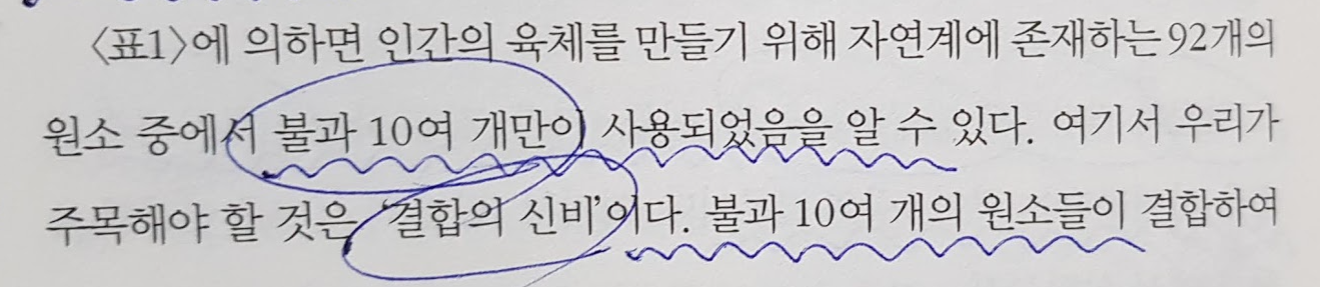 〈표1〉에 의하면 인간의 육체를 만들기 위해 자연계에 존재하는 92개의
원소 중에서 불과 10여 개만이 사용되었음을 알 수 있다. 여기서 우리가
주목해야 할 것은 ‘결합의 신비’이다. 불과 10여 개의 원소들이 결합하여